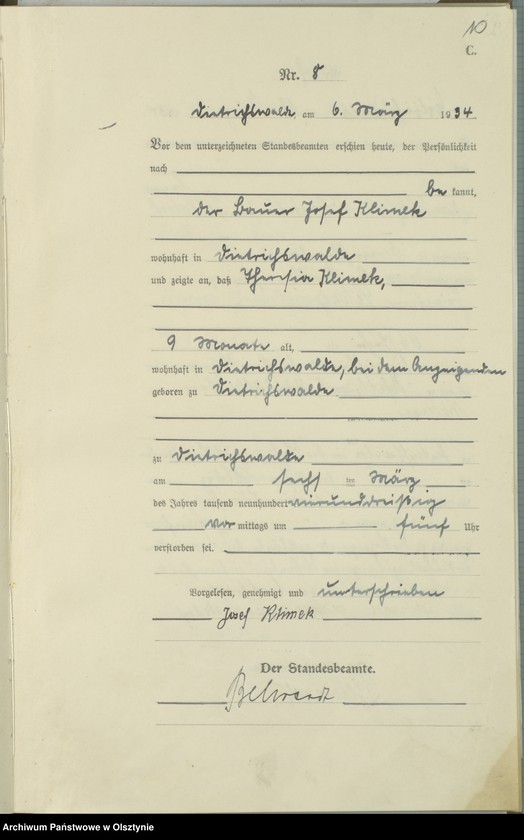 10
C.
Nr. 8
Dietrichswalde, am 6. März 1934
Vor dem unterzeichneten Standesbeamten erschien heute, der Persönlichkeit
nach
bekannt,
der Bauer Josef Klimek
wohnhaft in Dietrichswalde
und zeigte an, daß Theresia Klimek,
9 Monate alt,
wohnhaft in Dietrichswalde, bei dem Anzeigenden
geboren zu Dietrichswalde
zu Dietrichswalde
am sechs ten März
des Jahres tausend neunhundert vierunddreißig
vor mittags um fünf Uhr
verstorben sei.
Vorgelesen, genehmigt und unterschrieben
Josef Klimek
Der Standesbeamte.
Behrendt
Archiwum Państwowe w Olsztynie